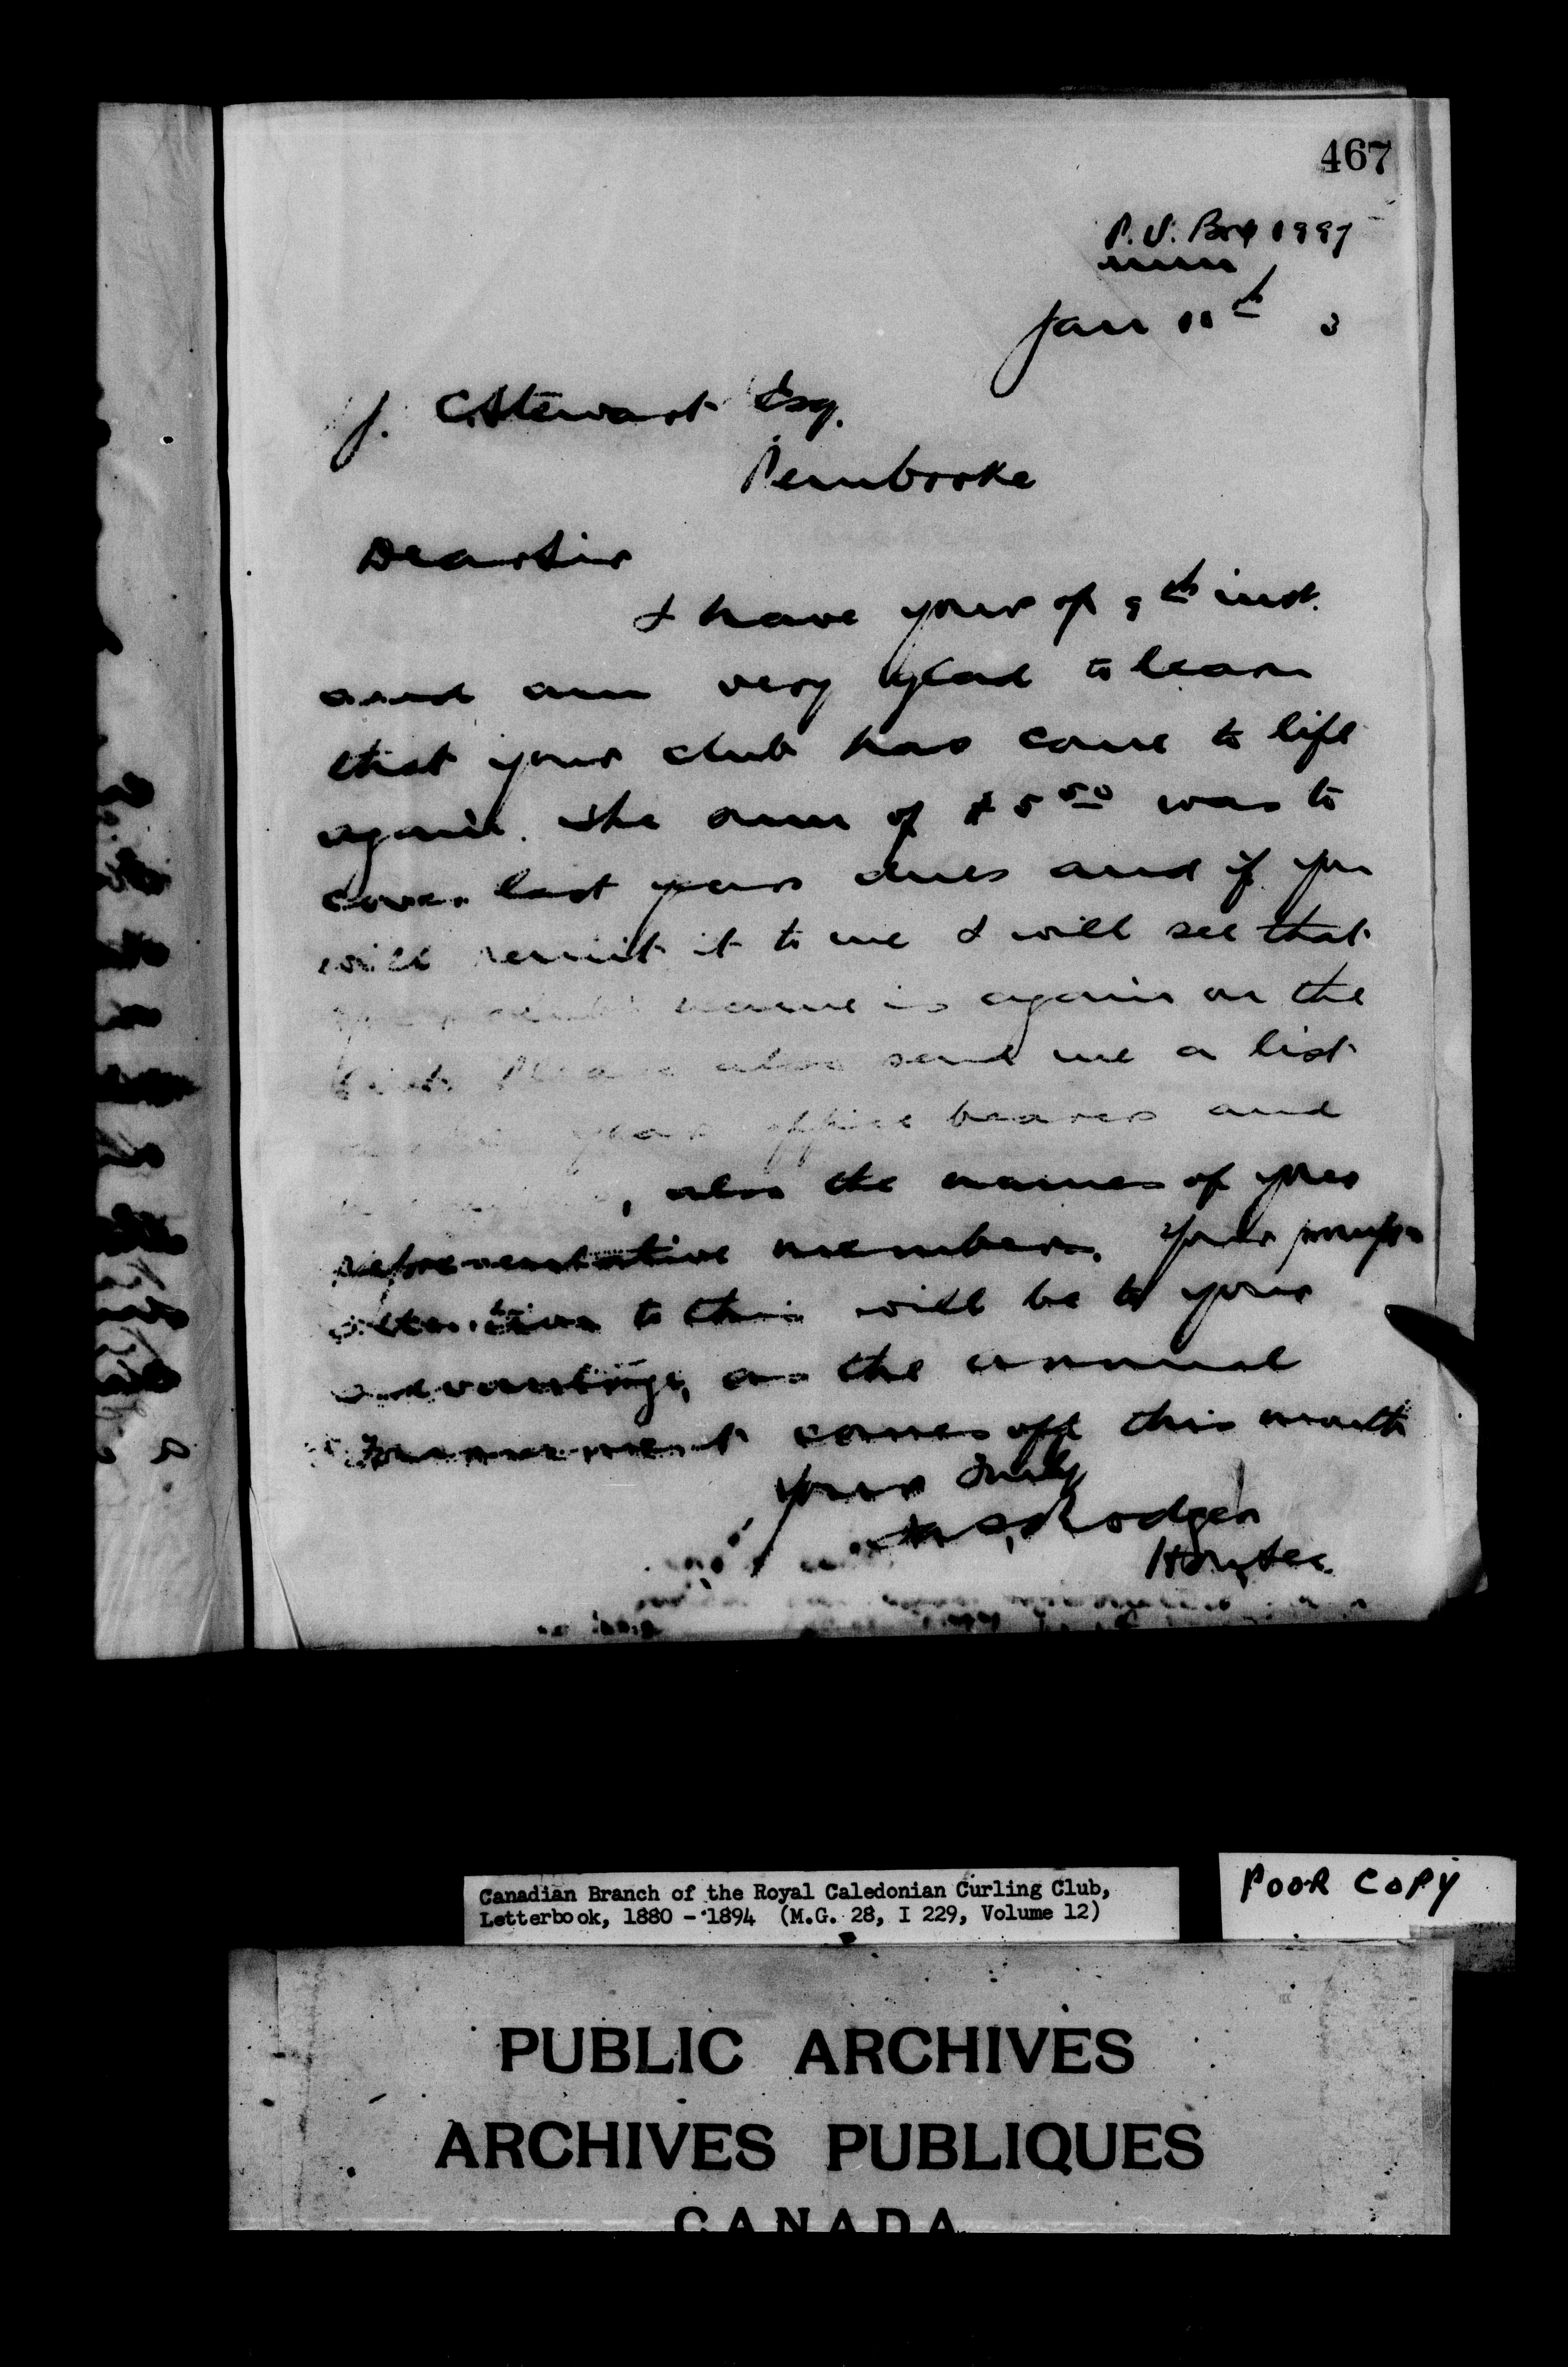 467
P.O. Box 1997
Jan 11th 3
J. C. Stewart Esq.
Pembroke
Dear Sir
I have your of 9th inst.
and am very glad to learn
that your club has come to life
again. The sum of $5 50 was to
cover last years dues and if you
will remit it to me I will see that
your club's name is again on the
list. Please also send me a list
years office bearers and
, also the names of your
representative members. Your prompt
attention to this will be to your
advantage, as the annual
Tournament comes off this month
Yours truly
A S, Rodger
Hon, Sec.
Canadian Branch of the Royal Caledonian Curling Club,
Letterbook, 1880 - 1894 (M.G. 28, I 229, Volume 12)
POOR COPY
PUBLIC ARCHIVES
ARCHIVES PUBLIQUES
CANADA